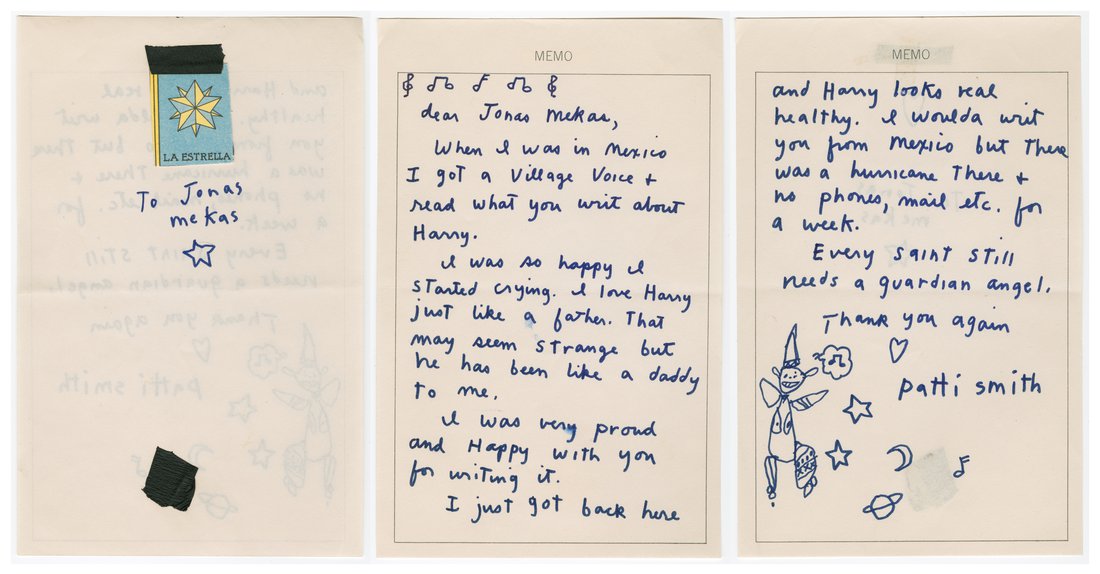 LA ESTRELLA
To Jonas
mekas
MEMO
dear Jonas Mekas,
When I was in Mexico
I got a Village Voice +
read what you writ about
Harry.
I was so happy I
started crying. I love Harry
just like a father. That
may seem strange but
he has been like a daddy
to me.
I was very proud
and Happy with you
for writing it.
I just got back here
MEMO
and Harry looks real
healthy. I woulda writ
you from Mexico but There
was a hurricane There +
no phones, mail etc. for
a week.
Every saint still
needs a guardian angel.
Thank you again
patti smith